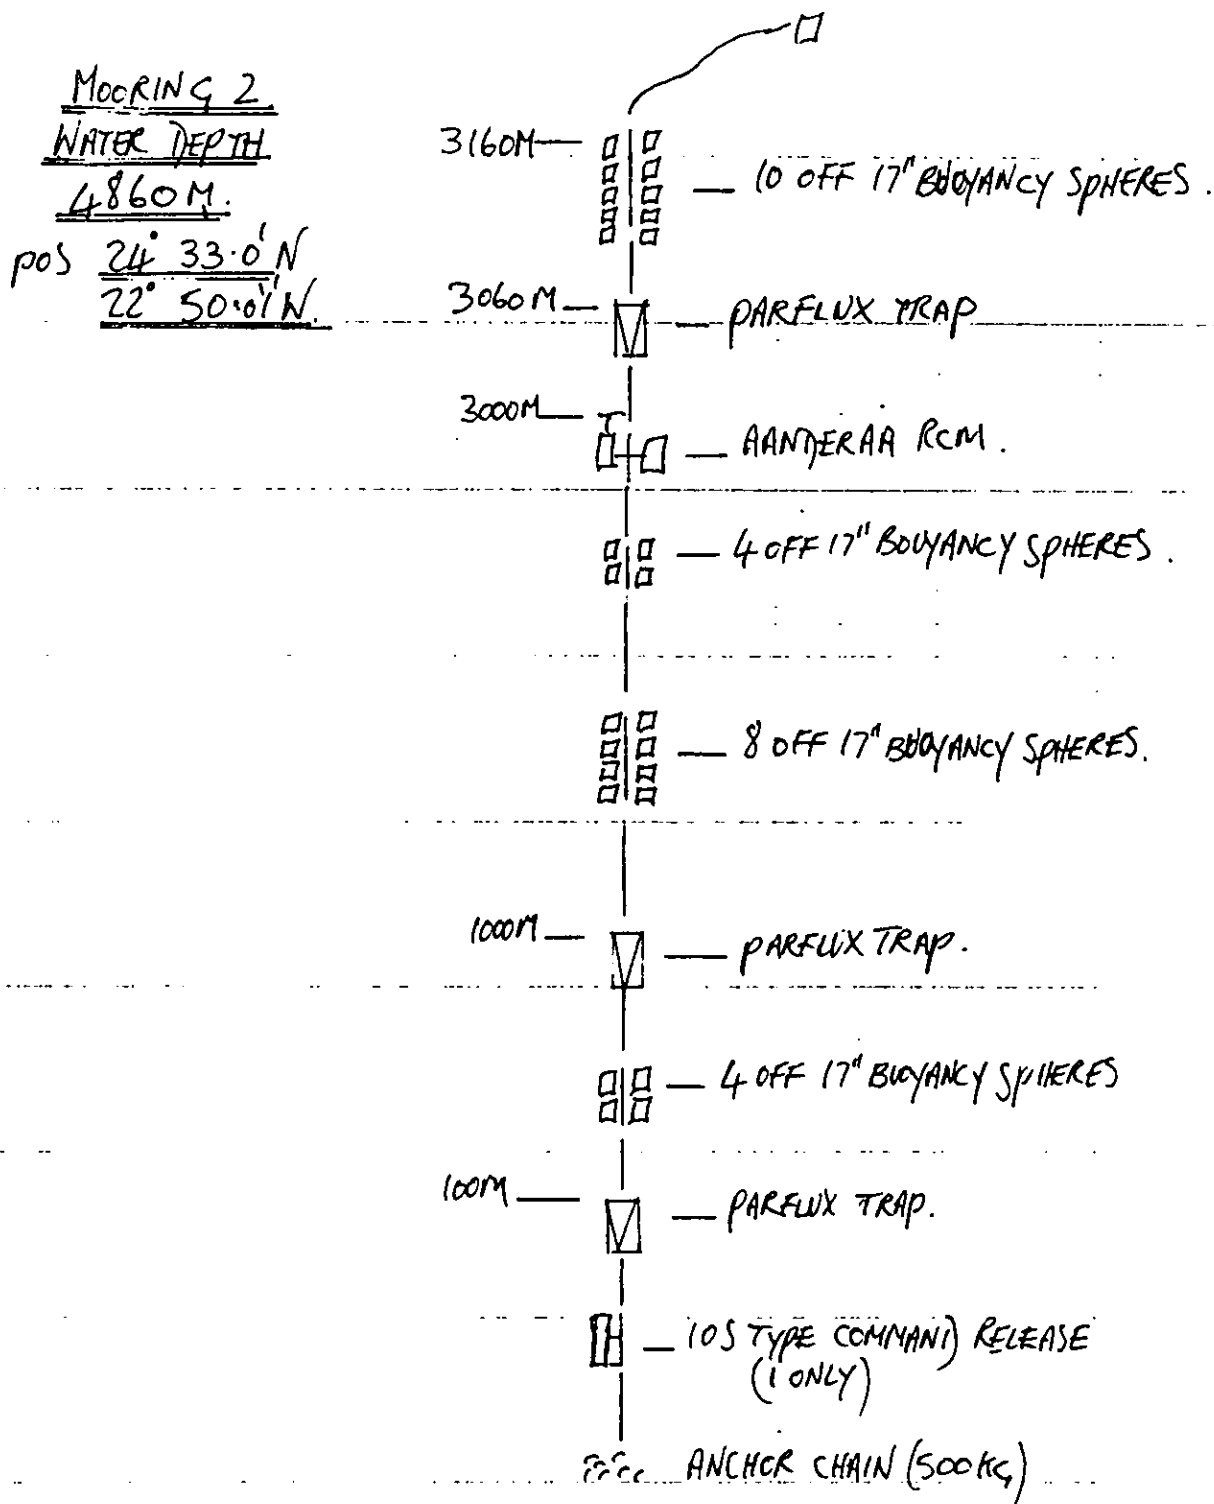 MOORING 2
WATER DEPTH
4860M.
pos 24° 33.0' N
22° 50.01' W.
3160M
10 OFF 17" BUOYANCY SPHERES.
3060M
PARFLUX TRAP
3000M
AANDERAA RCM.
4 OFF 17" BOUYANCY SPHERES.
8 OFF 17" BUOYANCY SPHERES.
1000M
PARFLUX TRAP.
4 OFF 17" BUOYANCY SPHERES
100M
PARFLUX TRAP.
IOS TYPE COMMAND RELEASE
(1 ONLY)
ANCHOR CHAIN (500KG)